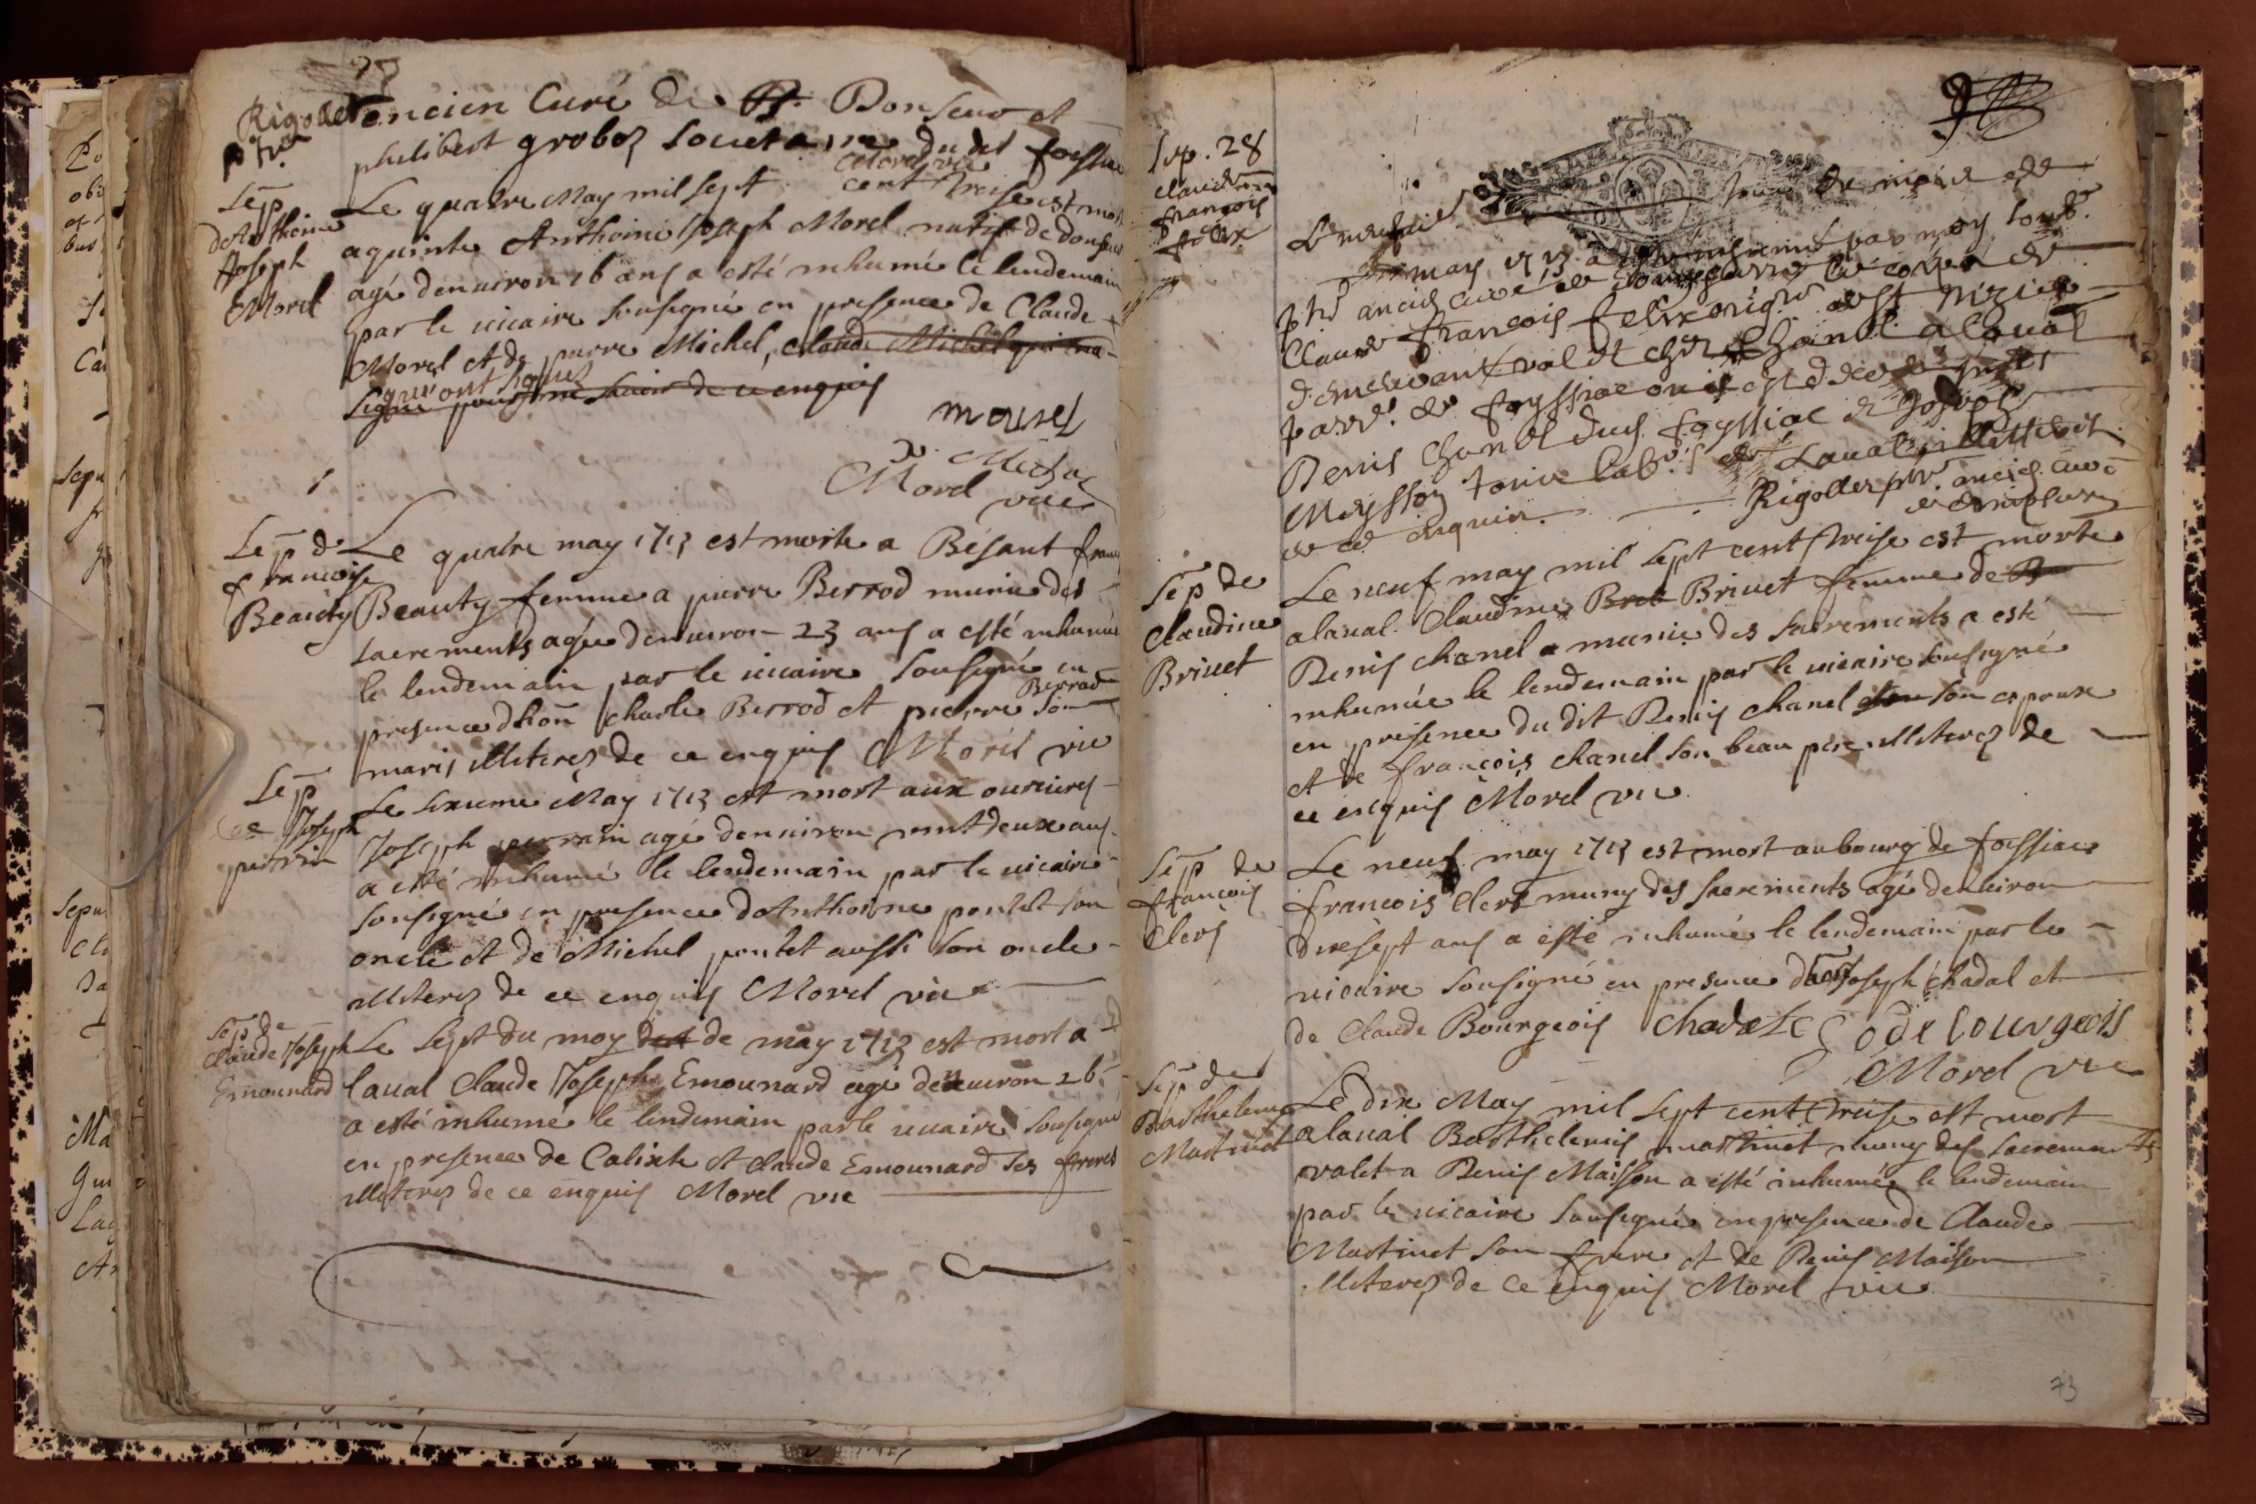 Rigollet ancien Curé de Donseur et
ptre
philibert groboz societaire du dit foissia
Morel vic
Sep
d'Anthoine
Joseph
Morel
Le quatre May mil sept cent treise est mort
aquinte Anthoine Joseph Morel natif de donseur
agé denuiron 26 ans a esté inhumé le lendemain
par le uicaire sousigné en presence de Claude
Morel et de pierre Michel, Claude Michel qui ona
qui ont signés
signé pour ne sauoir de ce enquis
mourel
Micha
Morel vic
Sep de
francoise
Beauty
Le quatre may 1713 est morte a Bésant fran
Beauty femme a pierre Berrod munie des
sacrements agée denuiron 23 ans a esté inhumée
le lendemain par le uicaire sousigné en
Berrod
presence dhon charle Berrod et pierre son
maris illiterez de ce enquis Morel vic
Sep
de Joseph
perrin
Le sixieme May 1713 est mort aux ouriures
Joseph perrain agé denuiron uint deux ans
a esté inhumé le lendemain par le uicaire
sousigné en presence dAnthoine pontet son
oncle et de Michel pontet aussi son oncle
illiterez de ce enquis Morel vic
Sep de
Claude Joseph
Emounard
Le sept du moy de may 1713 est mort a
laual Claude Joseph Emounard agé denuiron 26
a esté inhumé le lendemain par le uicaire sousigné
en presence de Calixte et claude Emounard ses freres
illiterez de ce enquis Morel vic
Sep. 28
claude
francois
felix
Le
may 1713 a esté inhumé par moy soub.
ptre ancien curé de le corps de
Claude francois felix orig. de St Nizier
demeurant valet chez Chanel a laual
parr. de foyssiac ou il est decedé
Denis Chanel dud. foyssiac et Joseph
Meysson tonier lab. de Laual illitterez
de ce enquis. Rigollet ptr. ancien curé
de donseurre
Sep de
Claudine
Briuet
Le neuf may mil sept cent treise est morte
alaual Claudine Breb Briuet femme de
Denis chanel munie des sacrements a esté
inhumée le lendemain par le uicaire sousigné
en presence du dit Denis chanel son espoux
et de francois chanel son beau pere illiterez de
ce enquis Morel vic
Sep de
francois
Clers
Le neuf may 1713 est mort au bourg de foissiac
francois Clers muny des sacrements agé denuiron
dix sept ans a esté inhumé le lendemain par le
uicaire sousigné en presence dhon Joseph chadal et
de Claude Bourgeois chadal C ode bourgeois
Morel vic
Sep de
Barthelemy
Martinet
Le dix May mil sept cent treise est mort
alaual Barthelemis martinet muny des sacrements
valet a Denis Maisson a esté inhumé le lendemain
par le uicaire sousigné en presence de Claude
Martinet son frere et de Denis Maisson
illiterez de ce enquis Morel vic
73